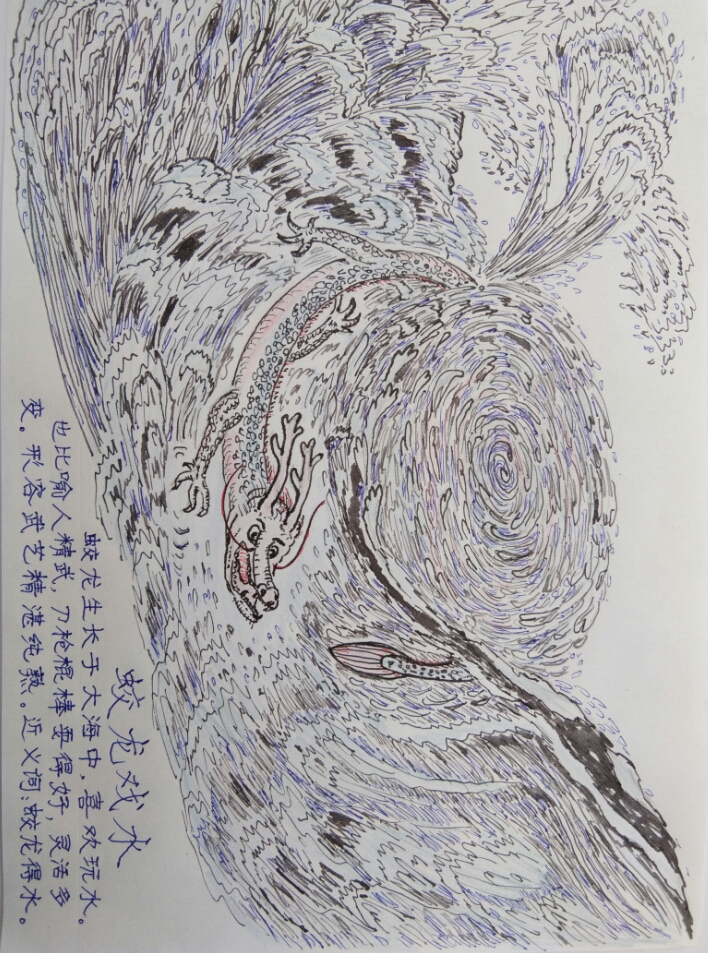 蛟龙戏水
蛟龙生长于大海中，喜欢玩水。
也比喻人精武，刀枪棍棒耍得好，灵活多
变。形容武艺精湛纯熟。近义词：蛟龙得水。